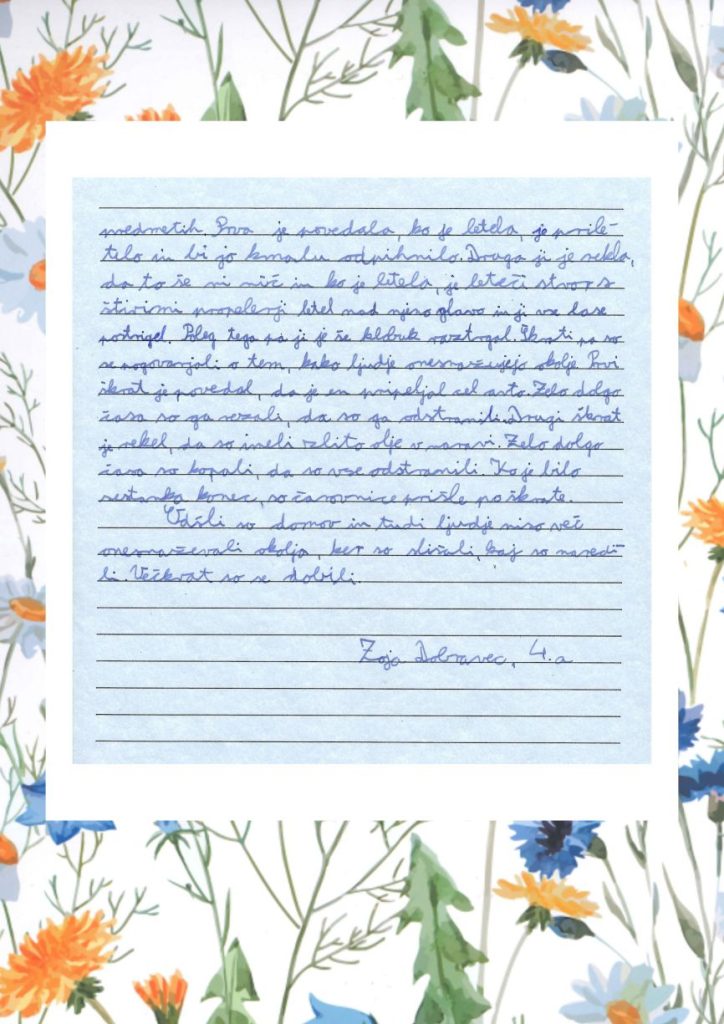 predmetih. Prva je povedala, ko je letela, je prile-
telo in bi jo kmalu odpihnilo. Druga ji je rekla,
da to še ni nič in ko je letela, je leteči stvor s
štirimi propelerji letel nad njeno glavo in ji vse lase
postrigel. Poleg tega pa ji je še klobuk raztrgal. Škrati pa so
se pogovarjali o tem, kako ljudje onesnažujejo okolje. Prvi
škrat je povedal, da je en pripeljal cel avto. Zelo dolgo
časa so ga rezali, da so ga odstranili. Drugi škrat
je rekel, da so imeli zlito olje v naravi. Zelo dolgo
časa so kopali, da so vse odstranili. Ko je bilo
sestanka konec, so čarovnice prišle po škrate.
Odšli so domov in tudi ljudje niso več
onesnaževali okolja, ker so slišali, kaj so naredi-
li. Večkrat so se dobili.
Zoja Dobravec, 4. a